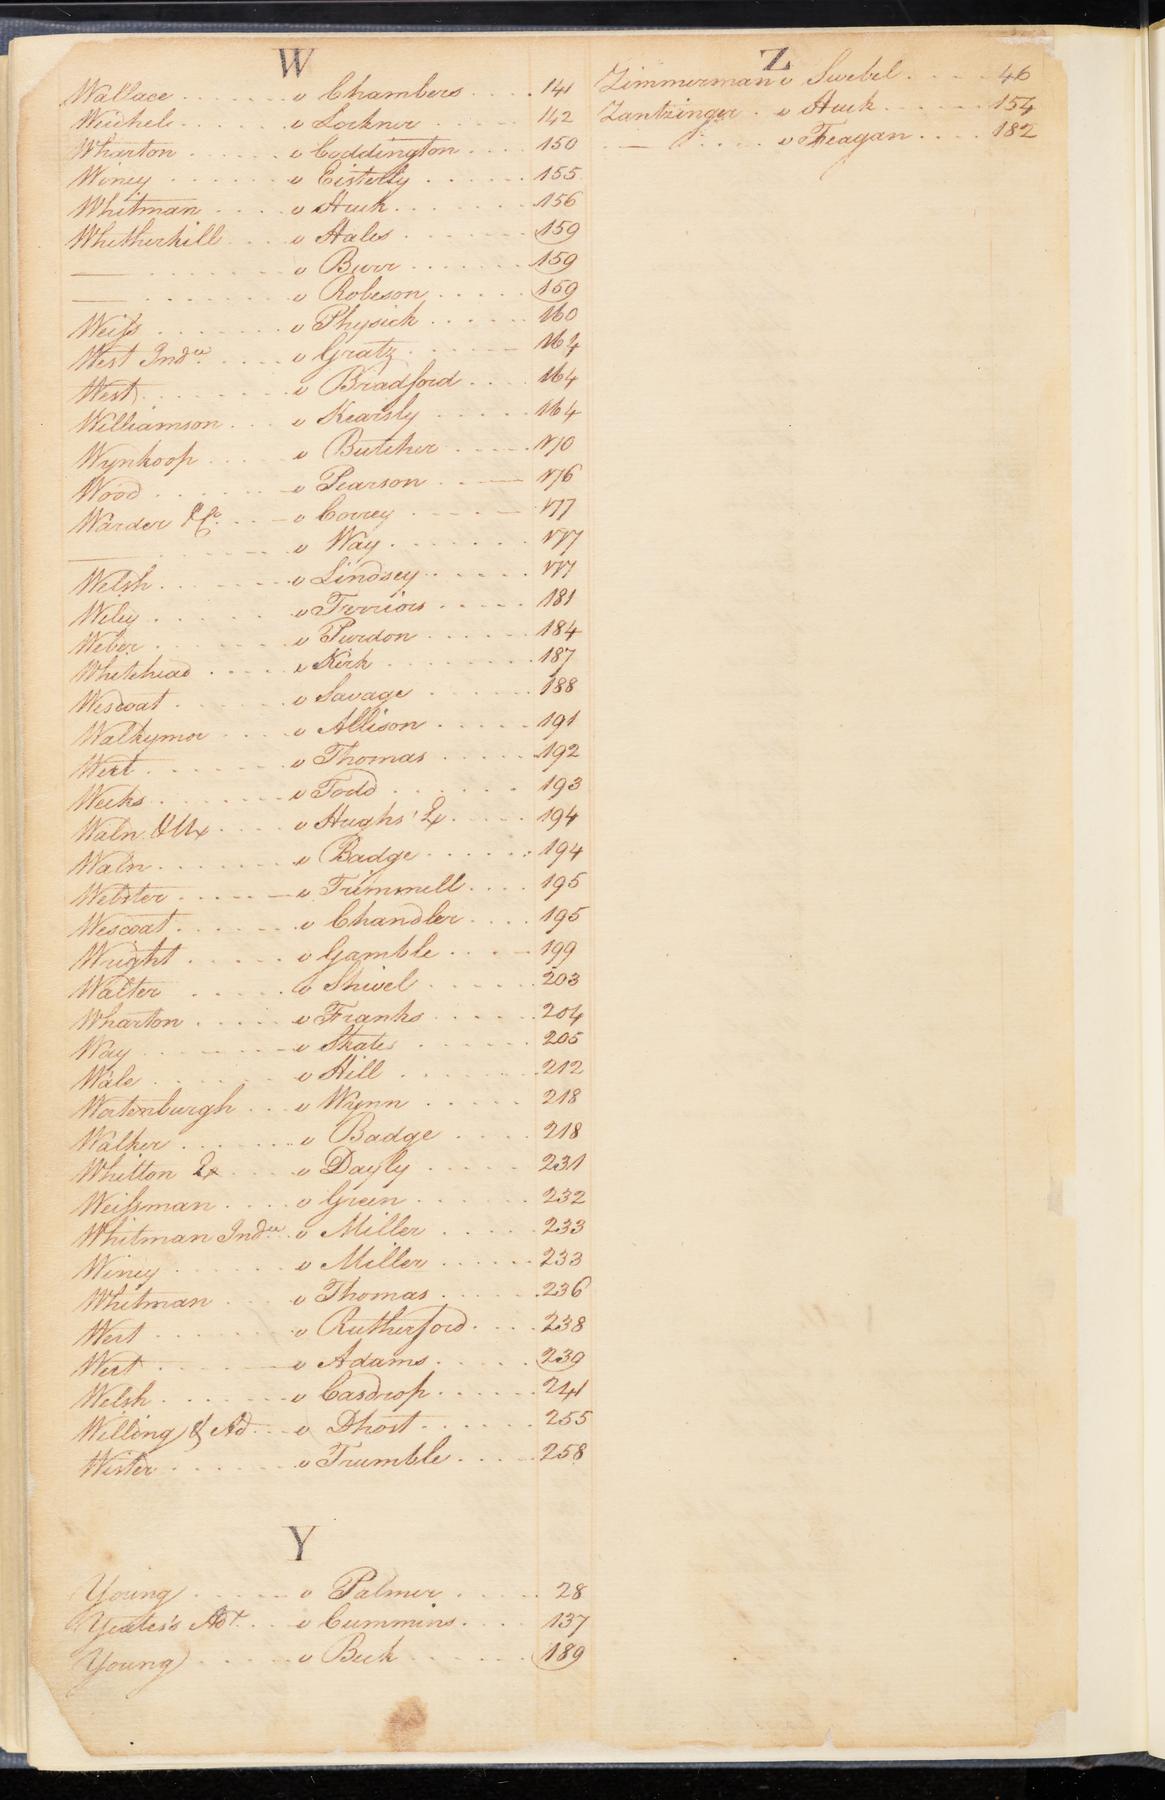 W
Wallace v Chambers 141
Weichel v Lockner 142
Wharton v Coddington 150
Winey v Eisterly 155
Whitman v Huck 156
Whetherhill v Hales 159
— v Burr 159
— v Robeson 159
Weiss v Physick 160
West Indee v Gratz 164
West v Bradford 164
Williamson v Kearsly 164
Wynkoop v Butcher 170
Wood v Pearson 176
Warder & Co v Correy 177
— v Way 177
Welsh v Lindsey 177
Wiley v Ferriors 181
Weber v Purdon 184
Whitehead v Kirk 187
Wescoat v Savage 188
Walkymor v Allison 191
Wert v Thomas 192
Weeks v Todd 193
Waln & Ux v Hughs' Ex 194
Waln v Badge 194
Webster v Trimmell 195
Wescoat v Chandler 195
Wright v Gamble 199
Walter v Shivel 203
Wharton v Franks 204
Way v Skates 205
Wale v Hill 212
Wertenburgh v Wynn 218
Walker v Badge 218
Whitton Ex v Dayly 231
Weissman v Green 232
Whitman Indee v Miller 233
Winey v Miller 233
Whitman v Thomas 236
Wert v Rutherford 238
Wert v Adams 239
Welsh v Casdrop 241
Willing & Ad v Dhost 255
Wister v Trumble 258
Y
Young v Palmer 28
Yeates's Adr v Cummins 137
Young v Beck 189
Z
Zimmerman v Swebel 46
Zantzinger v Huck 154
— v Feagan 182